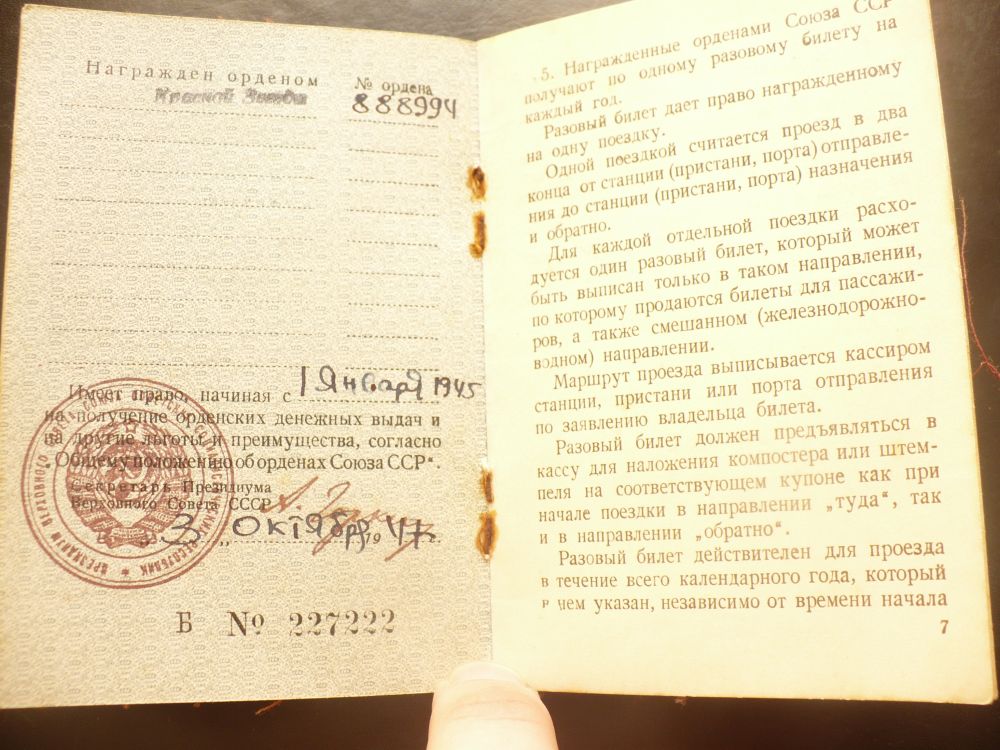 Награжден орденом
№ ордена
Красной Звезды
888994
Имеет право, начиная с 1 Января 1945
на получение орденских денежных выдач и
на другие льготы и преимущества, согласно
"Общему положению об орденах Союза ССР".
Секретарь Президиума
Верховного Совета СССР
"3" Октября 1947 г.
ПРЕЗИДИУМ ВЕРХОВНОГО СОВЕТА СОЮЗА СОВЕТСКИХ СОЦИАЛИСТИЧЕСКИХ РЕСПУБЛИК
Б № 227222
5. Награжденные орденами Союза ССР
получают по одному разовому билету на
каждый год.
Разовый билет дает право награжденному
на одну поездку.
Одной поездкой считается проезд в два
конца от станции (пристани, порта) отправле-
ния до станции (пристани, порта) назначения
и обратно.
Для каждой отдельной поездки расхо-
дуется один разовый билет, который может
быть выписан только в таком направлении,
по которому продаются билеты для пассажи-
ров, а также смешанном (железнодорожно-
водном) направлении.
Маршрут проезда выписывается кассиром
станции, пристани или порта отправления
по заявлению владельца билета.
Разовый билет должен предъявляться в
кассу для наложения компостера или штем-
пеля на соответствующем купоне как при
начале поездки в направлении „туда“, так
и в направлении „обратно“.
Разовый билет действителен для проезда
в течение всего календарного года, который
в нем указан, независимо от времени начала
7